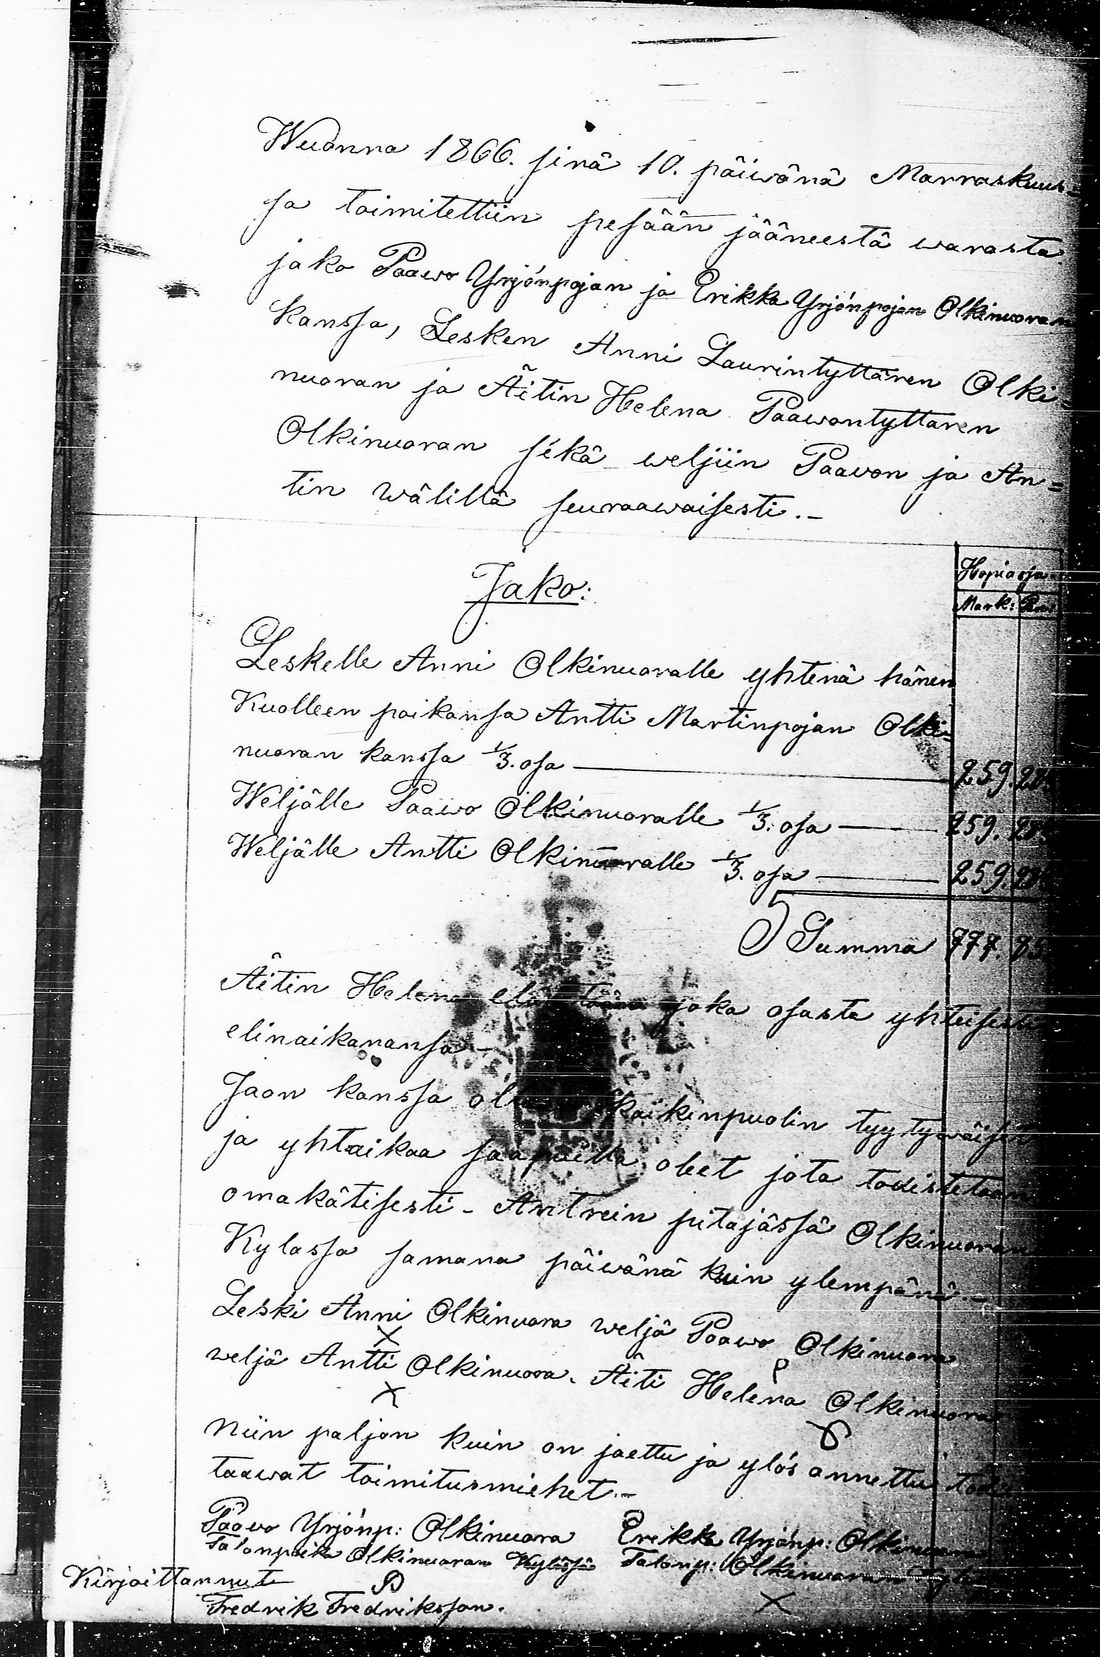 Wuonna 1866. sinä 10. päiwänä Marraskuus=
sa toimitettiin pesään jääneestä warasta
jako Paawo Yrjönpojan ja Erikka Yrjönpojan Olkinuoran
kanssa, Lesken Anni Laurintyttären Olki=
nuoran ja Äitin Helena Paawontyttären
Olkinuoran sekä weljiin Paavon ja An=
tin wälillä seuraawaisesti.-
Jako:
Hopiassa
Mark: Pen:
Leskelle Anni Olkinuoralle yhtenä hänen
Kuolleen poikansa Antti Martinpojan Olki=
nuoran kanssa 1/3. osa 259.
Weljälle Paawo Olkinuoralle 1/3. osa 259.
Weljälle Antti Olkinuoralle 1/3. osa 259.
Summa 777. 85
Äitin Helena joka osasta yhteisesti
elinaikanansa.-
Jaon kanssa kaikinpuolin tyytywäiset
ja yhtaikaa saapuilla oleet jota todistetaan
omakätisesti - Antrein pitäjässä Olkinuoran
Kylässä samana päiwänä kuin ylempänä.-
Leski Anni Olkinuora weljä Paawo Olkinuora
X P
weljä Antti Olkinuora. Äiti Helena Olkinuora
X
Niin paljon kuin on jaettu ja ylös annettu todis
taawat toimitusmiehet.-
Paawo Yrjönp: Olkinuora Erikka Yrjönp: Olkinuora
Talonpoika Olkinuoran Kylässä Talonp: Olkinuoran Kyläs
X
Kirjoittannut
Fredrik Fredriksson.